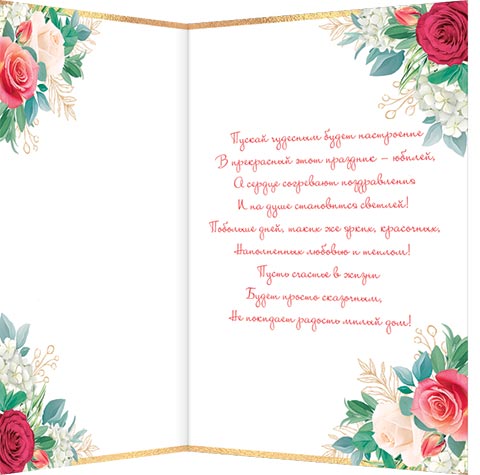 Пускай чудесным будет настроение
В прекрасный этот праздник – юбилей,
А сердце согревают поздравления
И на душе становится светлей!
Побольше дней, таких же ярких, красочных,
Наполненных любовью и теплом!
Пусть счастье в жизни
Будет просто сказочным,
Не покидает радость милый дом!